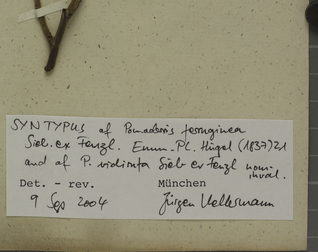 SYNTYPUS of Pomaderris ferruginea
Sieb. ex Fenzl. Enum. Pl. Hügel (1837) 21
and of P. viridirufa Sieb ex Fenzl nom. inval.
Det. - rev. München
9 Sep 2004 Jürgen Kellermann